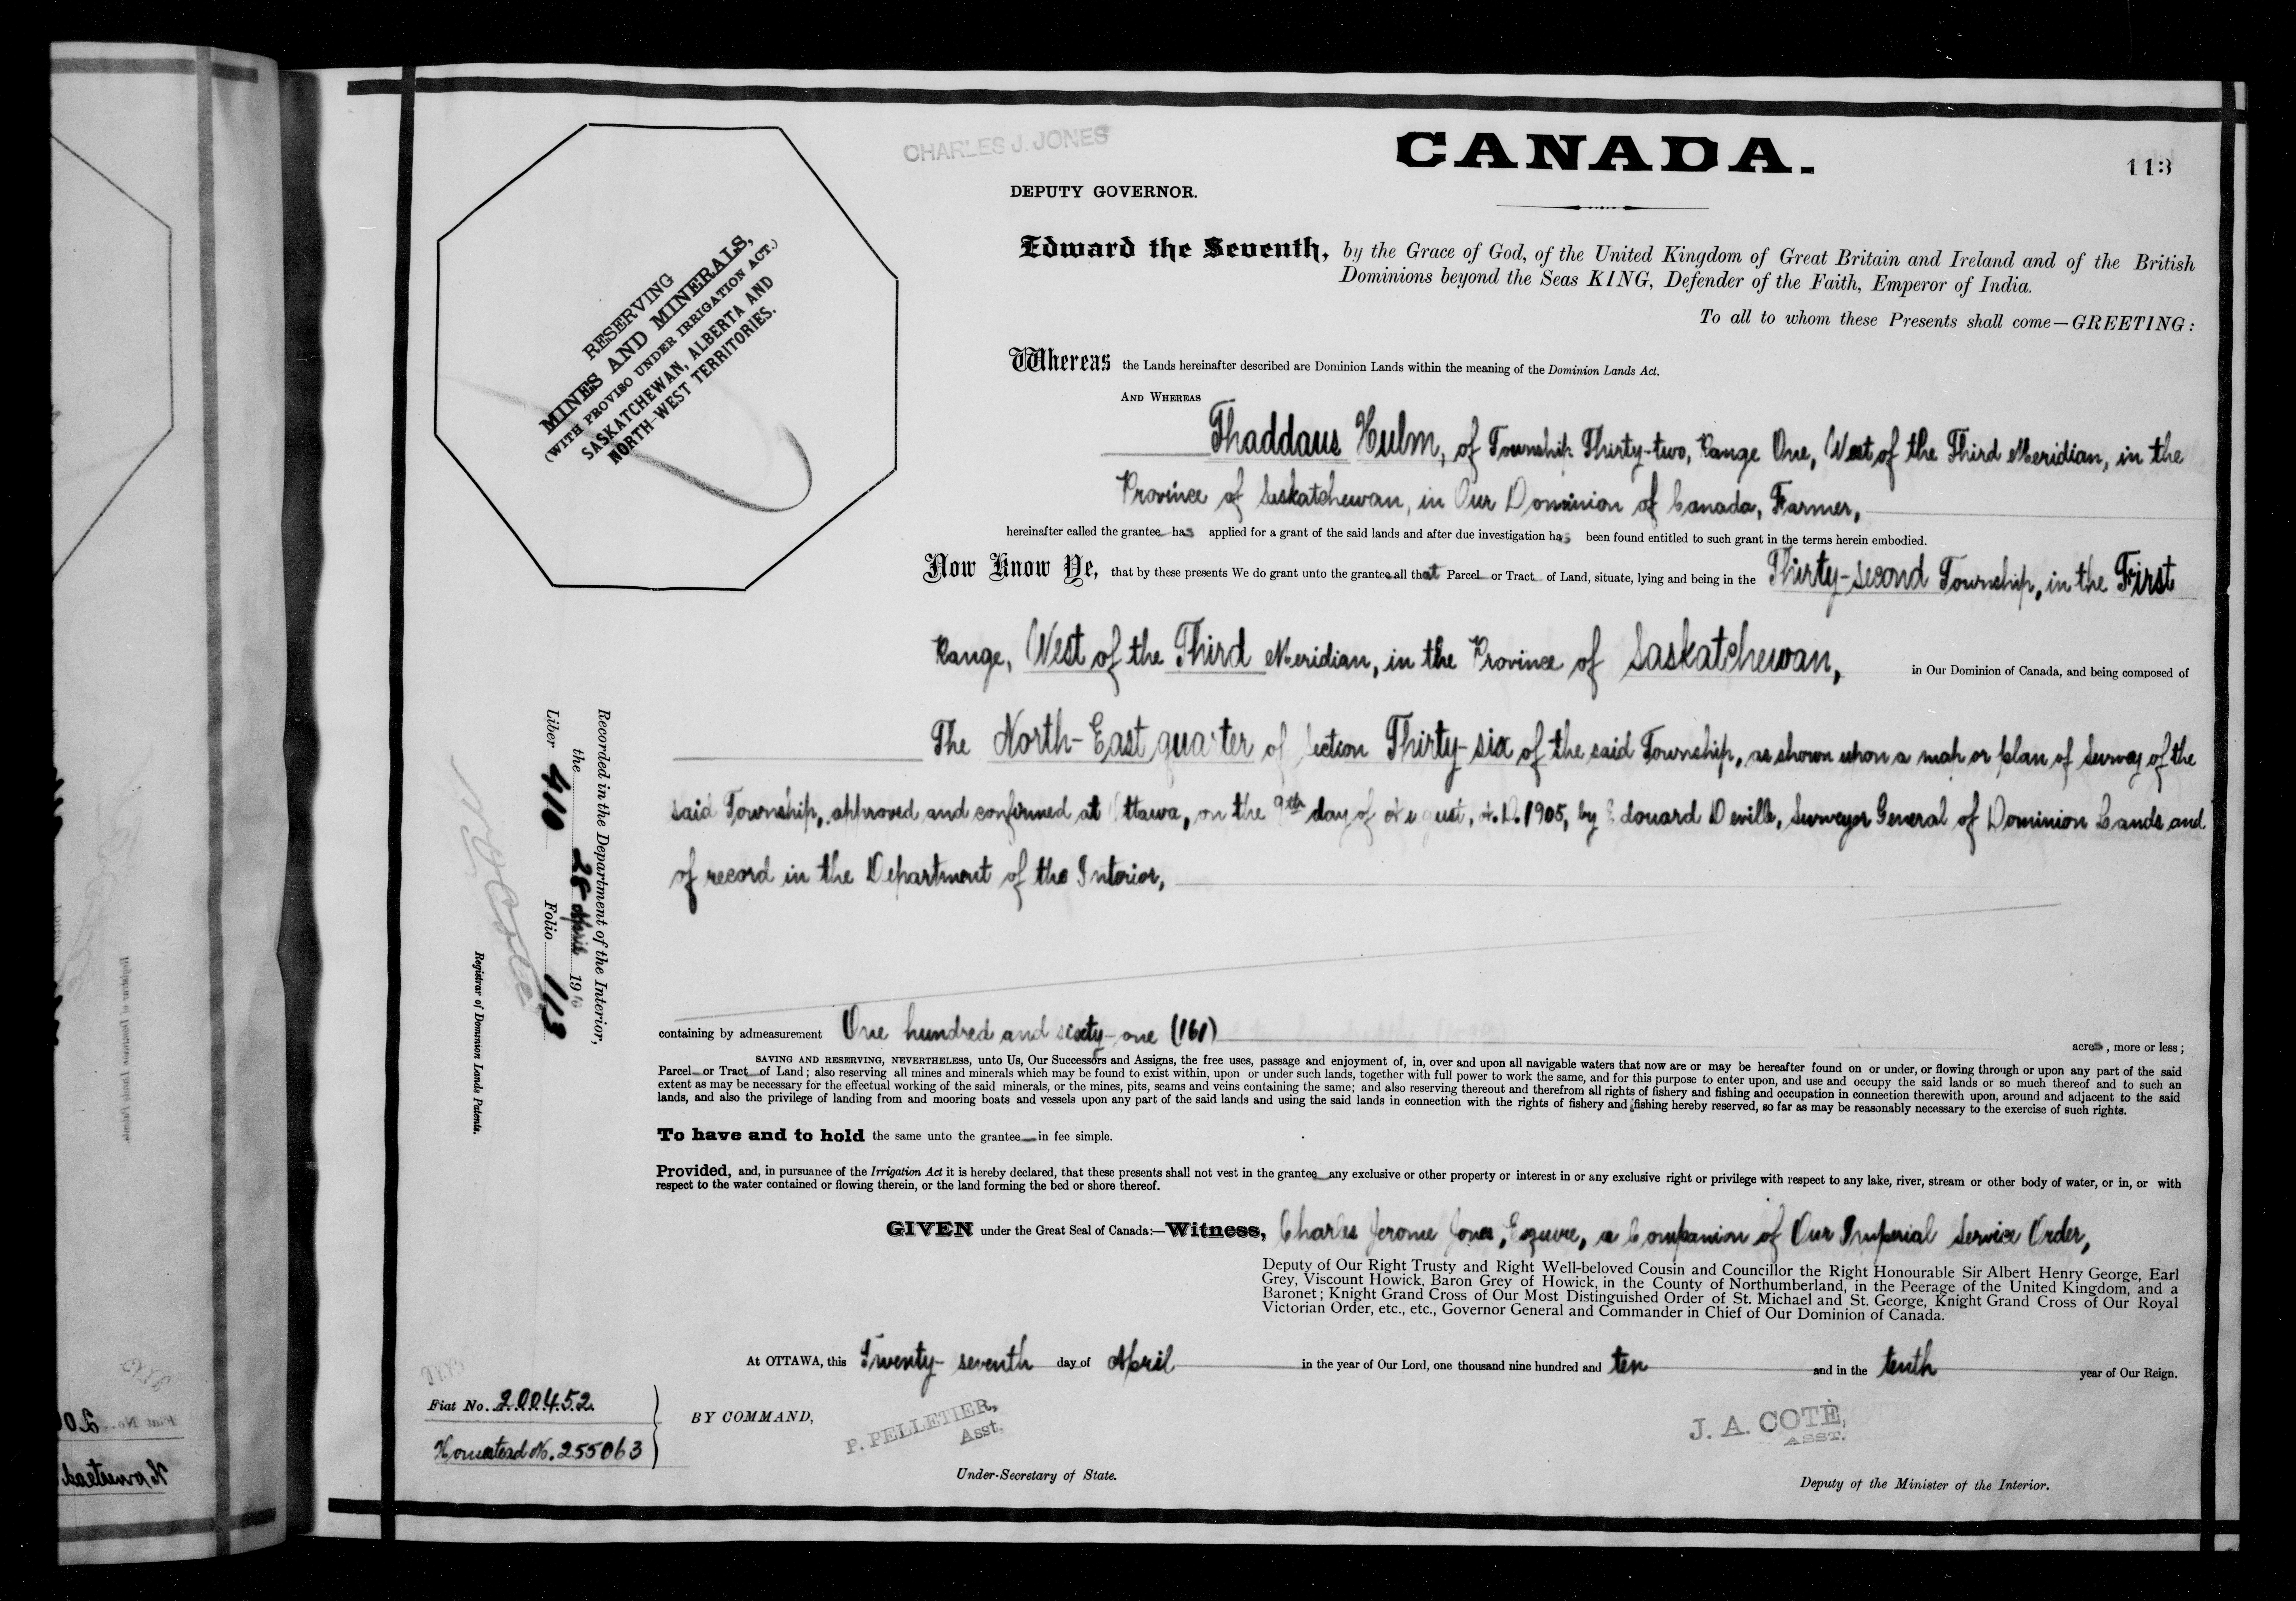 CHARLES J. JONES
CANADA.
113
DEPUTY GOVERNOR.
Edward the Seventh, by the Grace of God, of the United Kingdom of Great Britain and Ireland and of the British
Dominions beyond the Seas KING, Defender of the Faith, Emperor of India.
To all to whom these Presents shall come—GREETING:
RESERVING
MINES AND MINERALS,
(WITH PROVISO UNDER IRRIGATION ACT.)
SASKATCHEWAN, ALBERTA AND
NORTH-WEST TERRITORIES.
Whereas the Lands hereinafter described are Dominion Lands within the meaning of the Dominion Lands Act.
AND WHEREAS
Thaddaus Hulm, of Township Thirty-two, Range One, West of the Third Meridian, in the
Province of Saskatchewan, in Our Dominion of Canada, Farmer,
hereinafter called the grantee has applied for a grant of the said lands and after due investigation has been found entitled to such grant in the terms herein embodied.
Now Know Ye, that by these presents We do grant unto the grantee all that Parcel or Tract of Land, situate, lying and being in the Thirty-second Township, in the First
Range, West of the Third Meridian, in the Province of Saskatchewan, in Our Dominion of Canada, and being composed of
The North-East quarter of Section Thirty-six of the said Township, as shown upon a map or plan of survey of the
said Township, approved and confirmed at Ottawa, on the 9th day of August, A.D. 1905, by Edouard Deville, Surveyor General of Dominion Lands and
of record in the Department of the Interior,
containing by admeasurement One hundred and sixty-one (161) acres, more or less;
SAVING AND RESERVING, NEVERTHELESS, unto Us, Our Successors and Assigns, the free uses, passage and enjoyment of, in, over and upon all navigable waters that now are or may be hereafter found on or under, or flowing through or upon any part of the said
Parcel or Tract of Land; also reserving all mines and minerals which may be found to exist within, upon or under such lands, together with full power to work the same, and for this purpose to enter upon, and use and occupy the said lands or so much thereof and to such an
extent as may be necessary for the effectual working of the said minerals, or the mines, pits, seams and veins containing the same; and also reserving thereout and therefrom all rights of fishery and fishing and occupation in connection therewith upon, around and adjacent to the said
lands, and also the privilege of landing from and mooring boats and vessels upon any part of the said lands and using the said lands in connection with the rights of fishery and fishing hereby reserved, so far as may be reasonably necessary to the exercise of such rights.
To have and to hold the same unto the grantee in fee simple.
Provided, and, in pursuance of the Irrigation Act it is hereby declared, that these presents shall not vest in the grantee any exclusive or other property or interest in or any exclusive right or privilege with respect to any lake, river, stream or other body of water, or in, or with
respect to the water contained or flowing therein, or the land forming the bed or shore thereof.
GIVEN under the Great Seal of Canada:—Witness, Charles Jerome Jones, Esquire, a Companion of Our Imperial Service Order,
Deputy of Our Right Trusty and Right Well-beloved Cousin and Councillor the Right Honourable Sir Albert Henry George, Earl
Grey, Viscount Howick, Baron Grey of Howick, in the County of Northumberland, in the Peerage of the United Kingdom, and a
Baronet; Knight Grand Cross of Our Most Distinguished Order of St. Michael and St. George, Knight Grand Cross of Our Royal
Victorian Order, etc., etc., Governor General and Commander in Chief of Our Dominion of Canada.
At OTTAWA, this Twenty-seventh day of April in the year of Our Lord, one thousand nine hundred and ten and in the tenth year of Our Reign.
BY COMMAND,
P. PELLETIER,
Asst.
Under-Secretary of State.
J. A. COTÉ,
ASST.
Deputy of the Minister of the Interior.
Fiat No. 200452
Homestead No. 255063
Recorded in the Department of the Interior,
the 28 April 1910
Liber 410 Folio 113
Registrar of Dominion Lands Patents.